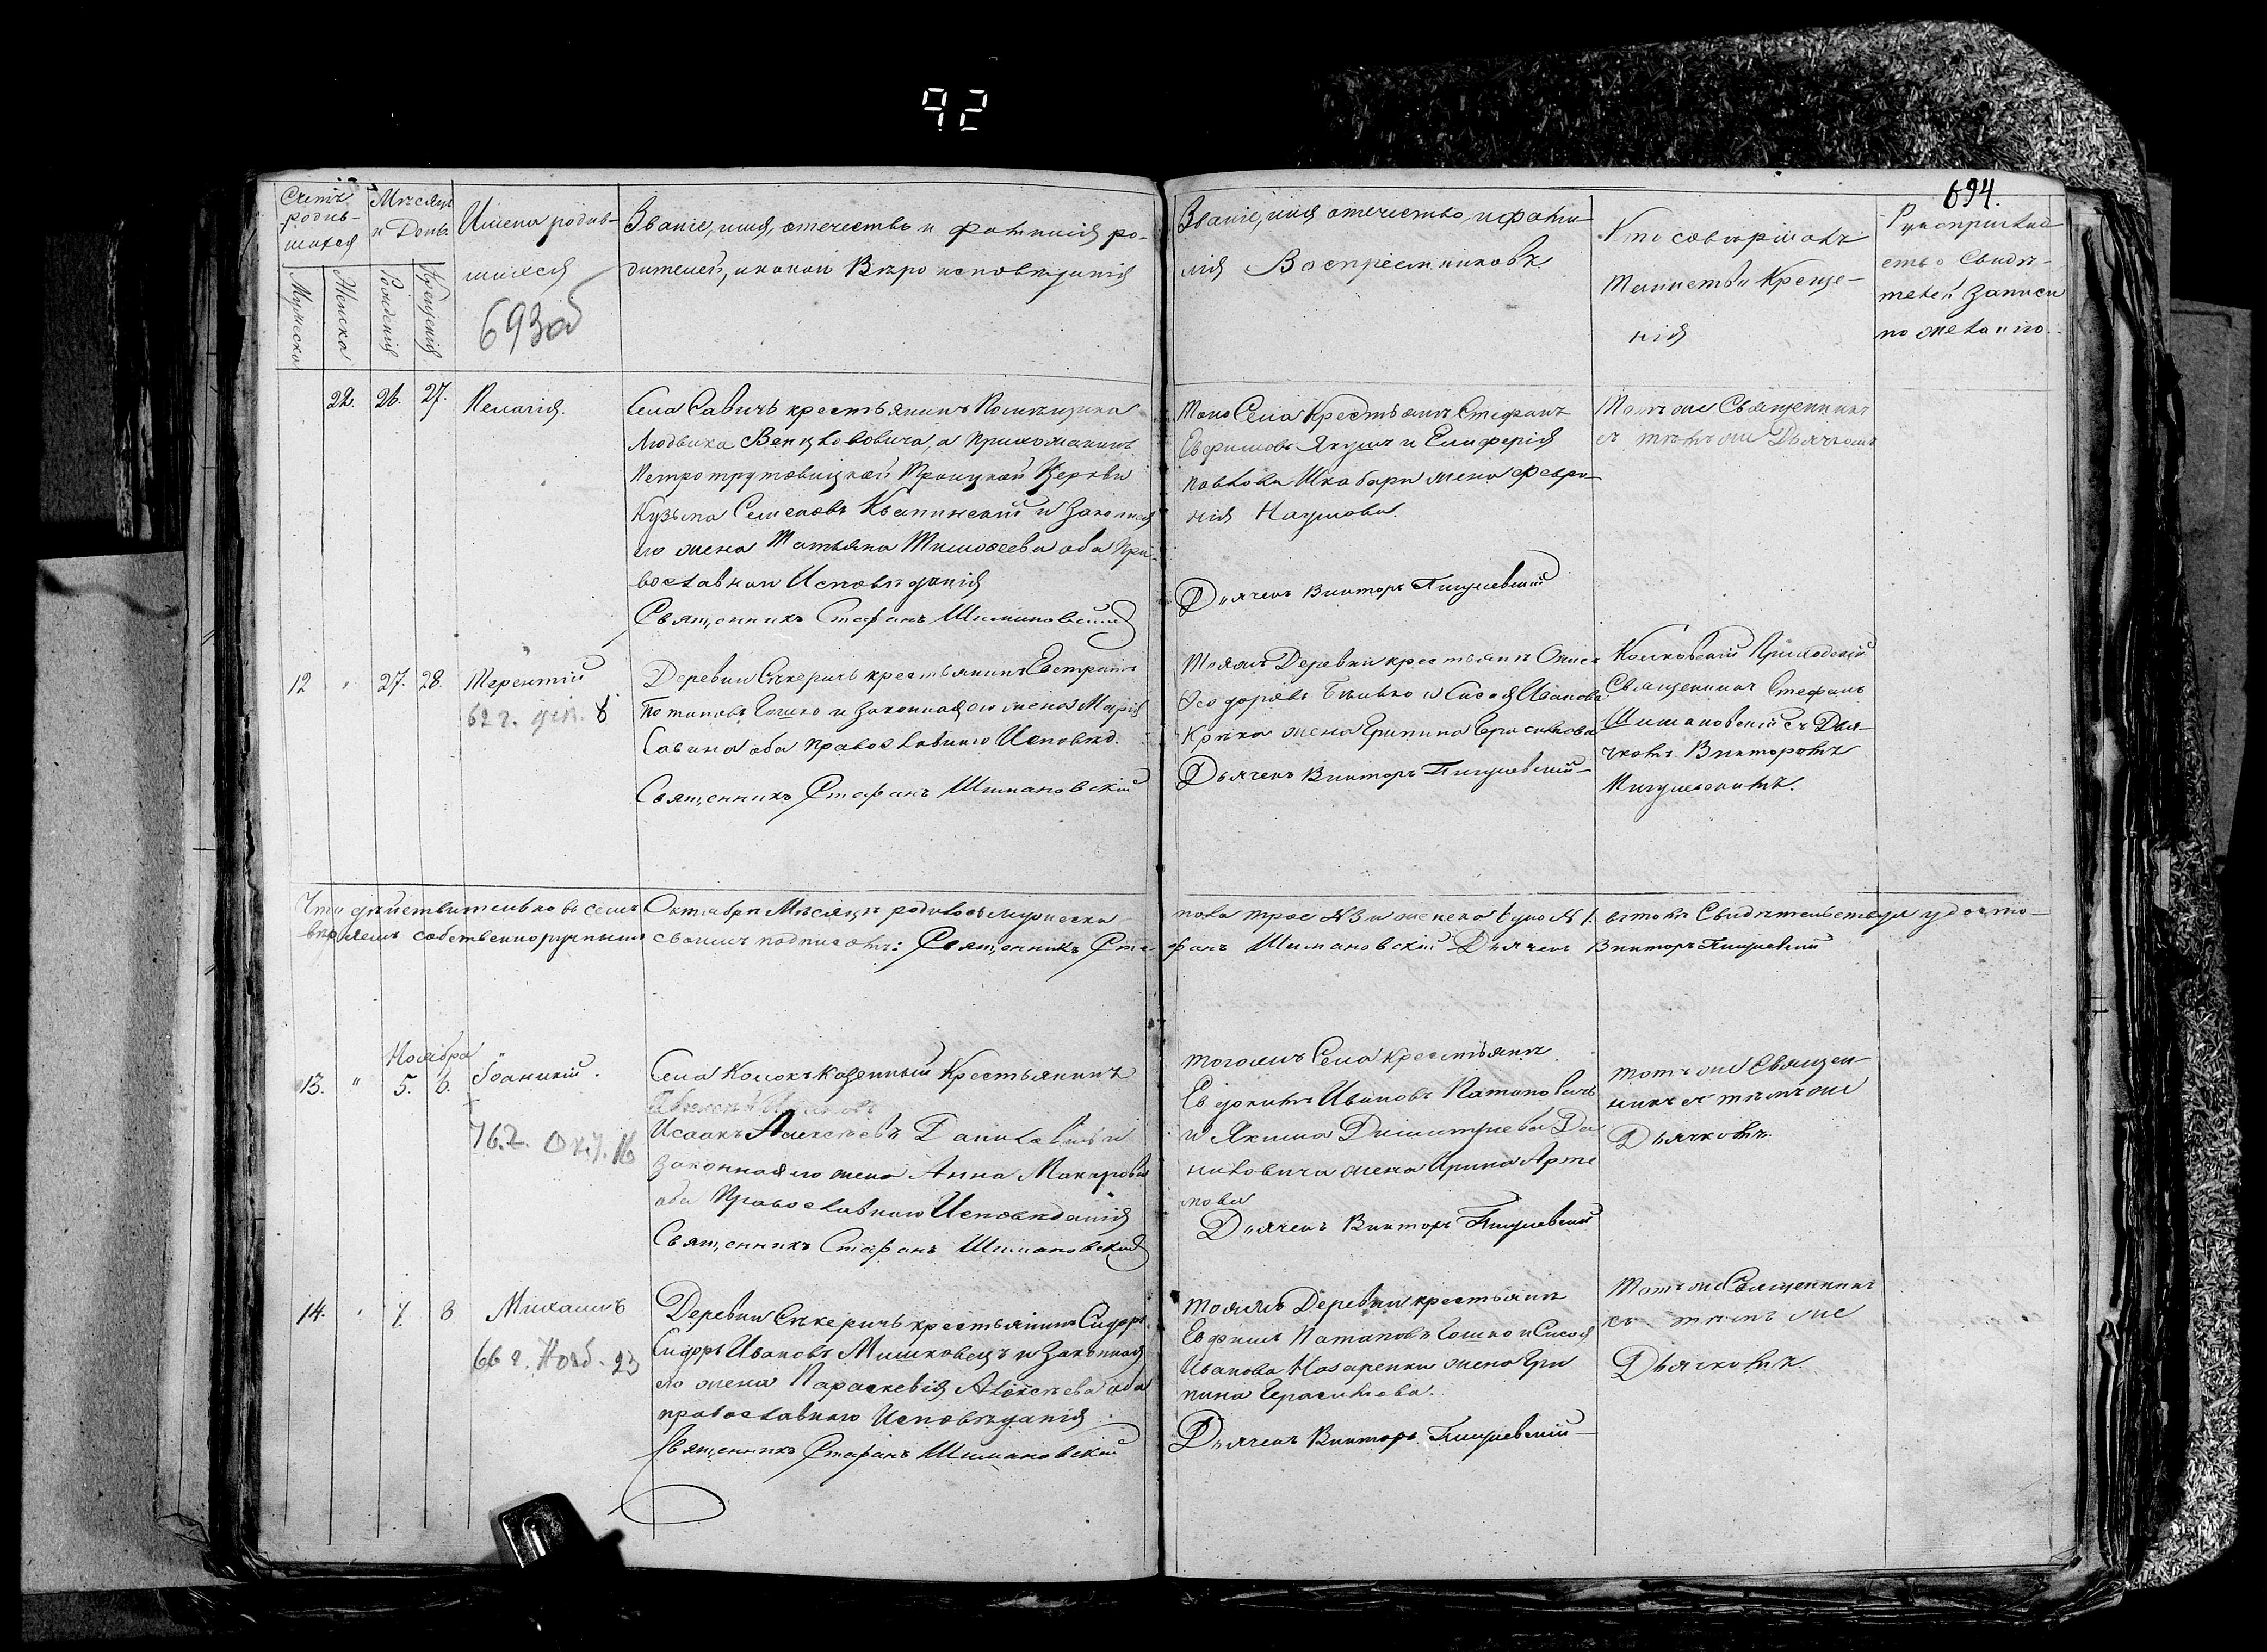 92
694.
Счетъ родив-
шихся
Мѣсяцъ
и День
Имена родив-
шихся
693об
Званіе, имя, отечество и фамилія ро-
дителей, и какой Вѣроисповѣданія
Мужеска
Женска
Рожденія
Крещенія
Званіе, имя отечество, и фами-
лія Воспріемниковъ
Кто совершалъ
Таинство Креще-
нія
Рукоприклад
ство Свидѣ-
телей записи
по желанію.
22. 26. 27. Пелагія.
Села Савичь крестьянинъ Помѣщика
Людвика Венцковича, а прихожанинъ
Троицкой Церкви
Кузьма Семеновъ и законная
его жена Татьяна Тимоѳеева оба Пра-
вославнаго Исповѣданія
Священникъ Стефанъ Шимановскій
Того Села Крестьянинъ Стефанъ
Евфимовъ Якушъ и
Павлова Шкабары жена Февро-
нія Наумова.
Дьячекъ Викторъ Пигулевскій
Тотъ же Священникъ
съ тѣмъ же Дьячкомъ
12 " 27. 28. Терентій
62 г. 8
Деревни Сѣкеричь крестьянинъ Евстратъ
Потаповъ Гошко и законная его жена Марія
Савина оба православнаго Исповѣд.
Священникъ Стефанъ Шимановскій
Тояжъ Деревни крестьянинъ
Ѳеодоровъ и Сисоя Иванова
жена Грипина Герасимова
Дьячекъ Викторъ Пигулевскій
Приходскій
Священникъ Стефанъ
Шимановскій съ Дья-
чкомъ Викторомъ
Пигулевскимъ.
Что дѣйствительно въ семъ Октябрѣ Мѣсяцѣ родилось мужеска пола трое №3 и женска одно №1. въ томъ Свидѣтельствуя удосто-
вѣряемъ собственноручнымъ своимъ подписомъ: Священникъ Сте-фанъ Шимановскій Дьячекъ Викторъ Пигулевскій
Ноября
13. " 5. 6. Іоаникій.
762. Окт. 16
Села Колокъ казенный Крестьянинъ
Исаакъ Алексѣевъ Даниловичъ и
законная его жена Анна Макарова
оба Православнаго Исповѣданія
Священникъ Стефанъ Шимановскій
тогожъ Села крестьянинъ
Евдокимъ Ивановъ Патаповичъ
и Якима Димитріева Да
ниловича жена Ирина Арте
мова
Дьячекъ Викторъ Пигулевскій
тотъ же Священ
никъ съ тѣмъ же
Дьячкомъ.
14. " 7. 8 Михаилъ
66 г. Нояб. 23
Деревни Сѣкеричь крестьянинъ Сидоръ
Сидоръ Ивановъ Мишковецъ и законная
его жена Параскевія Алексѣева оба
православнаго Исповѣданія
Священникъ Стефанъ Шимановскій
тояжъ Деревни крестьянинъ
Евфимъ Патаповъ Гошко и Сисоя
Иванова Назаренки жена Гри
пина Герасимова.
Дьячекъ Викторъ Пигулевскій
Тотъ же Священникъ
съ тѣмъ же
Дьячкомъ.